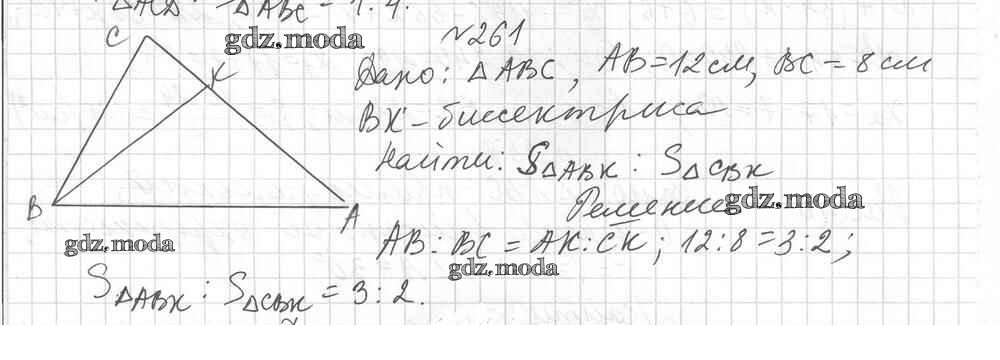 △ACD : △ABC = 1:4.
№261
gdz.moda
C
K
Дано: △ABC, AB=12см, BC=8см
BK - биссектриса
Найти: S△ABK : S△CBK
Решение
gdz.moda
B
A
gdz.moda
AB : BC = AK : CK; 12:8=3:2;
gdz.moda
S△ABK : S△CBK = 3:2.